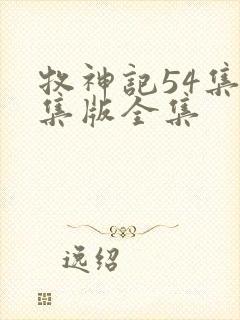 牧神記54集
集版全集
逸绍